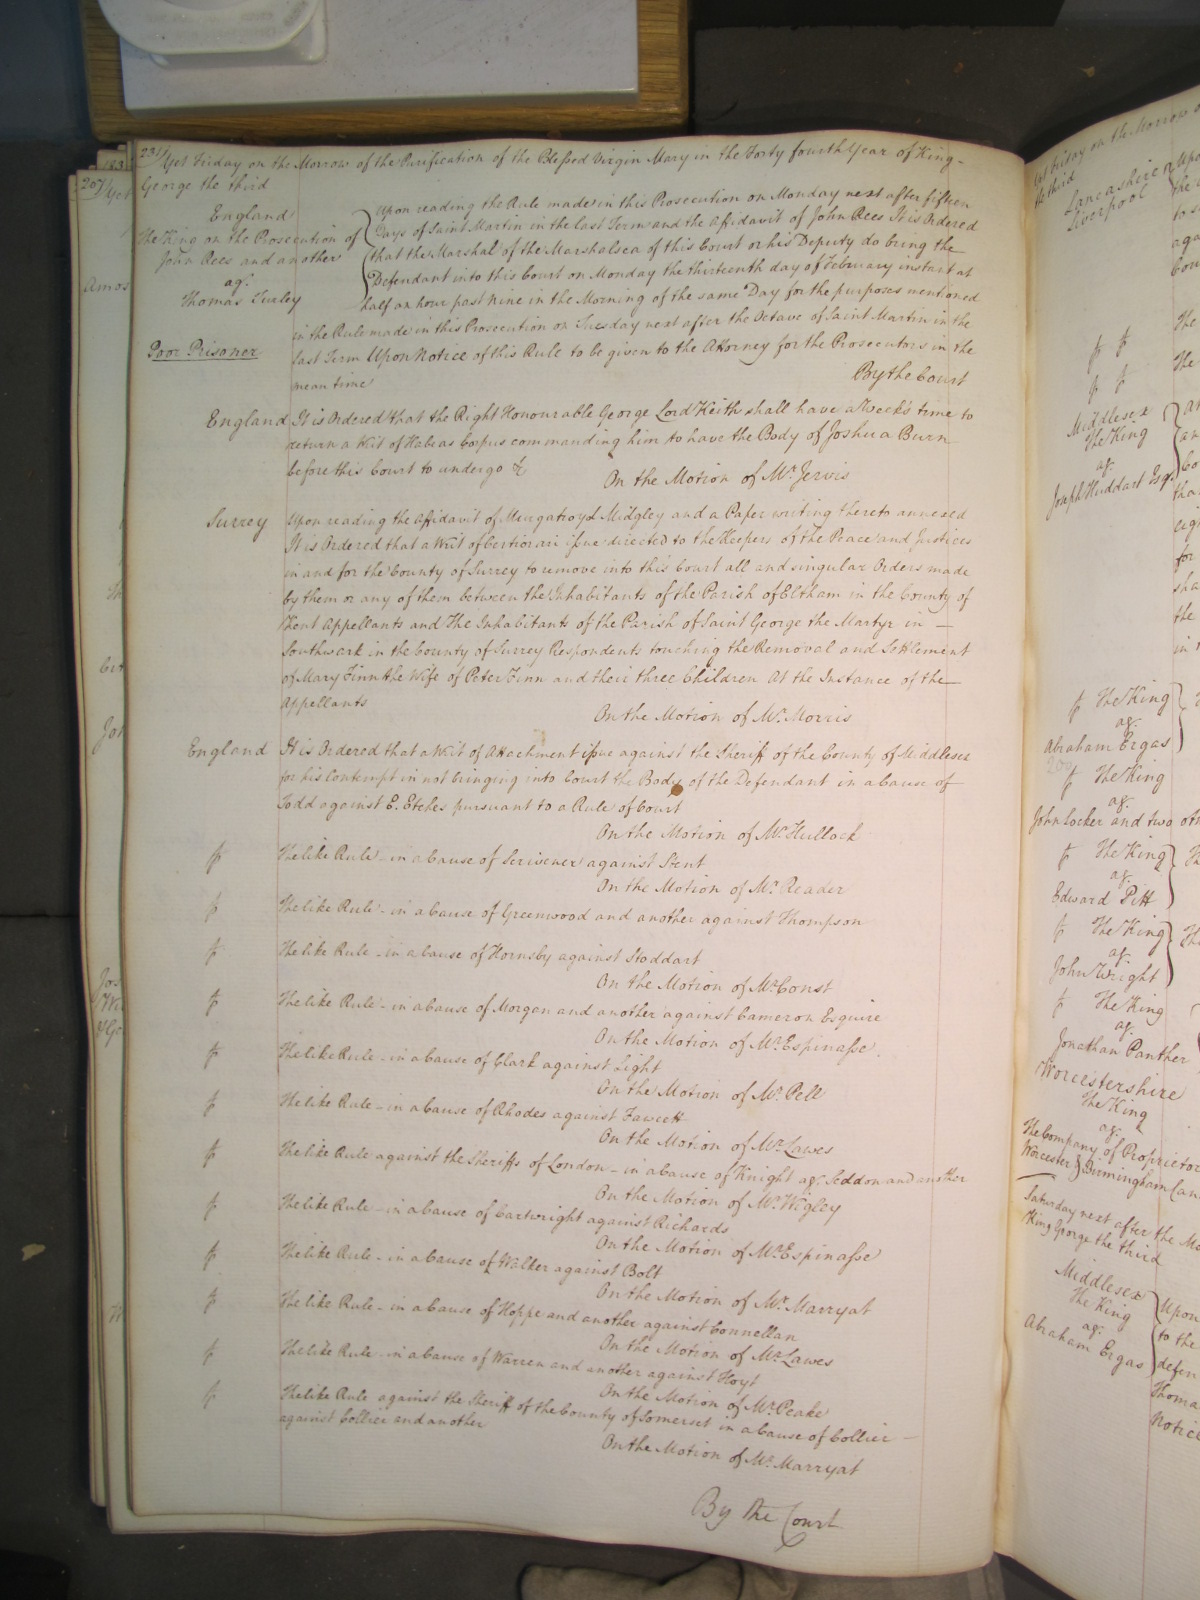 231 Yet Friday on the Morrow of the Purification of the Blessed Virgin Mary in the Forty fourth Year of King
George the third
England
The King on the Prosecution of
John Rees and another
agt.
Thomas Turley
Upon reading the Rule made in this Prosecution on Monday next after fifteen
Days of Saint Martin in the last Term and the Affidavit of John Rees It is Ordered
that the Marshal of the Marshalsea of this Court or his Deputy do bring the
Defendant into this Court on Monday the thirteenth day of February instant at
half an hour past Nine in the Morning of the same Day for the purposes mentioned
in the Rule made in this Prosecution on Tuesday next after the Octave of Saint Martin in the
Poor Prisoner
last Term Upon Notice of this Rule to be given to the Attorney for the Prosecutors in the
mean time
By the Court
England It is Ordered that the Right Honourable George Lord Keith shall have a Week's time to
return a Writ of Habeas Corpus commanding him to have the Body of Joshua Burn
before this Court to undergo &c
On the Motion of Mr. Jervis
Surrey Upon reading the Affidavit of Murgatroyd Midgley and a Paper writing thereto annexed
It is Ordered that a Writ of Certiorari issue directed to the Keepers of the Peace and Justices
in and for the County of Surrey to remove into this Court all and singular Orders made
by them or any of them between the Inhabitants of the Parish of Eltham in the County of
Kent Appellants and The Inhabitants of the Parish of Saint George the Martyr in
Southwark in the County of Surrey Respondents touching the Removal and Settlement
of Mary Finn the Wife of Peter Finn and their three Children At the Instance of the
Appellants
On the Motion of Mr. Morris
England It is Ordered that a Writ of Attachment issue against the Sheriff of the County of Middlesex
for his Contempt in not bringing into Court the Body of the Defendant in a Cause of
Todd against E. Etches pursuant to a Rule of Court
On the Motion of Mr. Hullock
The like Rule - in a Cause of Scrivener against Stent
On the Motion of Mr. Reader
The like Rule - in a Cause of Greenwood and another against Thompson
The like Rule - in a Cause of Hornsby against Stoddart
On the Motion of Mr. Const
The like Rule - in a Cause of Morgan and another against Cameron Esquire
On the Motion of Mr. Espinasse
The like Rule - in a Cause of Clark against Light
On the Motion of Mr. Pell
The like Rule - in a Cause of Rhodes against Fawcett
On the Motion of Mr. Lawes
The like Rule against the Sheriffs of London - in a Cause of Knight agt. Seddon and another
On the Motion of Mr. Wigley
The like Rule - in a Cause of Cartwright against Richards
On the Motion of Mr. Espinasse
The like Rule - in a Cause of Walker against Bolt
On the Motion of Mr. Marryat
The like Rule - in a Cause of Hoppe and another against Connellan
On the Motion of Mr. Lawes
The like Rule - in a Cause of Warren and another against Hoyt
On the Motion of Mr. Peake
The like Rule against the Sheriff of the County of Somerset in a Cause of Collier
against Collier and another
On the Motion of Mr. Marryat
By the Court
Yet Friday on the Morrow
the third
Lancashire
Liverpool
Middlesex
The King
agt.
Joseph Huddart Esqr.
The King
agt.
Abraham Ergas
200
The King
agt.
John Locker and two
The King
agt.
Edward Pitt
The King
agt.
John Wright
The King
agt.
Jonathan Panther
Worcestershire
The King
agt.
The Company of Proprietor
Worcester & Birmingham
Saturday next after the
King George the third
Middlesex
The King
agt.
Abraham Ergas
Upon
to the
defen
Thoma
Notice